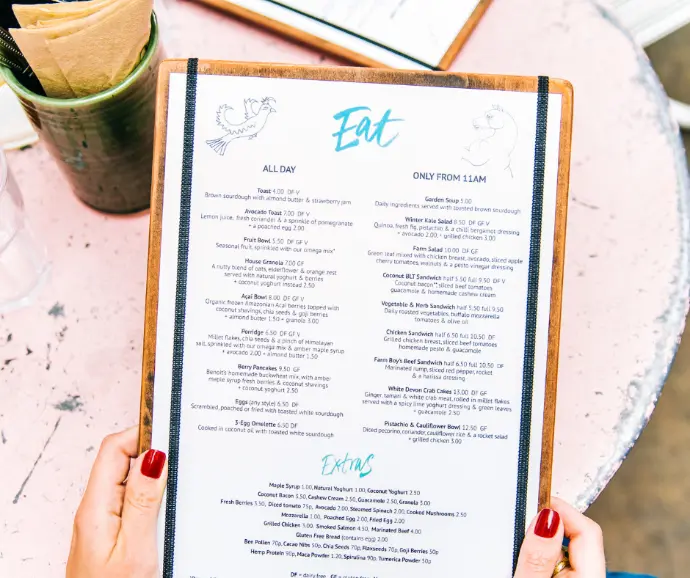 Eat
ALL DAY
Toast 4.00 DF V
Brown sourdough with almond butter & strawberry jam
Avocado Toast 7.00 DF V
Lemon juice, fresh coriander & a sprinkle of pomegranate
+ a poached egg 2.00
Fruit Bowl 5.50 DF GF V
Seasonal fruit, sprinkled with our omega mix*
House Granola 7.00 GF
A nutty blend of oats, elderflower & orange zest
served with natural yoghurt & berries
+ coconut yoghurt instead 2.50
Açaí Bowl 8.00 DF GF V
Organic frozen Amazonian Açaí berries topped with
coconut shavings, chia seeds & goji berries
+ almond butter 1.50 + granola 3.00
Porridge 6.50 DF GF V
Millet flakes, chia seeds & a pinch of Himalayan
salt, sprinkled with our omega mix & amber maple syrup
+ avocado 2.00 + almond butter 1.50
Berry Pancakes 9.50 GF
Benoit's homemade buckwheat mix, with amber
maple syrup fresh berries & coconut shavings
+ coconut yoghurt 2.50
Eggs (any style) 6.50 DF
Scrambled, poached or fried with toasted white sourdough
3-Egg Omelette 6.50 DF
Cooked in coconut oil with toasted white sourdough
ONLY FROM 11AM
Garden Soup 5.00
Daily ingredients served with toasted brown sourdough
Winter Kale Salad 8.50 DF GF V
Quinoa, fresh fig, pistachio & a chilli bergamot dressing
+ avocado 2.00, + grilled chicken 3.00
Farm Salad 10.00 DF GF
Green leaf mixed with chicken breast, avocado, sliced apple
cherry tomatoes, walnuts & a pesto vinegar dressing
Coconut BLT Sandwich half 5.50 full 9.50 DF V
Coconut bacon**, sliced beef tomatoes
guacamole & homemade cashew cream
Vegetable & Herb Sandwich half 5.50 full 9.50
Daily roasted vegetables, buffalo mozzarella
tomatoes & olive oil
Chicken Sandwich half 6.50 full 10.50 DF
Grilled chicken breast, sliced beef tomatoes
homemade pesto & guacamole
Farm Boy's Beef Sandwich half 6.50 full 10.50 DF
Marinated rump, sliced red pepper, rocket
& a harissa dressing
White Devon Crab Cakes 13.00 DF GF
Ginger, tamari & white crab meat, rolled in millet flakes
served with a spicy lime yoghurt dressing & green leaves
+ guacamole 2.50
Pistachio & Cauliflower Bowl 12.50 GF
Sliced pecorino, coriander, cauliflower rice & a rocket salad
+ grilled chicken 3.00
Extras
Maple Syrup 1.00, Natural Yoghurt 1.00, Coconut Yoghurt 2.50
Coconut Bacon 3.50, Cashew Cream 2.50, Guacamole 2.50, Granola 3.00
Fresh Berries 3.50, Diced tomato 75p, Avocado 2.00, Steamed Spinach 2.00, Cooked Mushrooms 2.50
Mozzarella 1.00, Poached Egg 2.00, Fried Egg 2.00
Grilled Chicken 3.00, Smoked Salmon 4.50, Marinated Beef 4.00
Gluten Free Bread (contains egg) 2.00
Bee Pollen 70p, Cacao Nibs 50p, Chia Seeds 70p, Flaxseeds 70p, Goji Berries 50p
Hemp Protein 90p, Maca Powder 1.20, Spirulina 90p, Tumerica Powder 50p